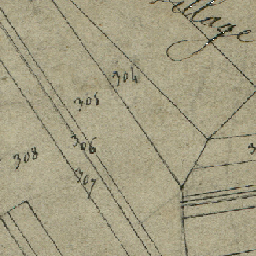 village
304
305
306
307
308
3